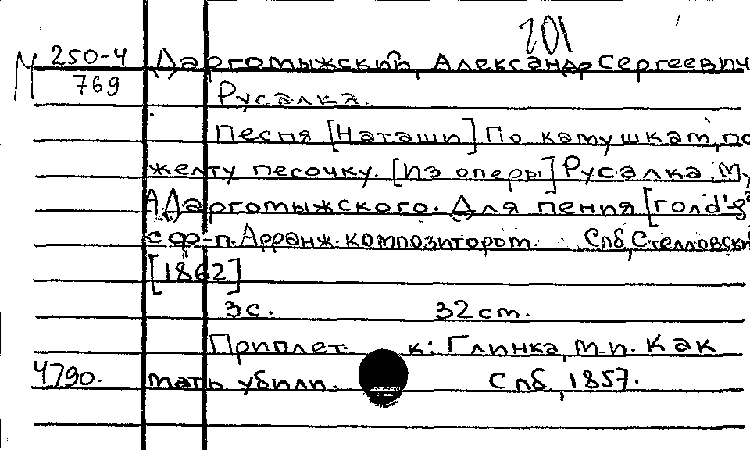 201
М 250-4 Даргомыжский, Александр Сергеевич
769
Русалка.
Песня [Наташи] По камушкам, по
желту песочку. [Из оперы] Русалка. Му
А. Даргомыжского. Для пения [голд'g²
с ф-п. Арранж. композитором. Спб, Стелловский
[1862]
3с. 32 cm.
Приплет. к: Глинка, М.И. Как
4790. мать убили. Спб, 1857.